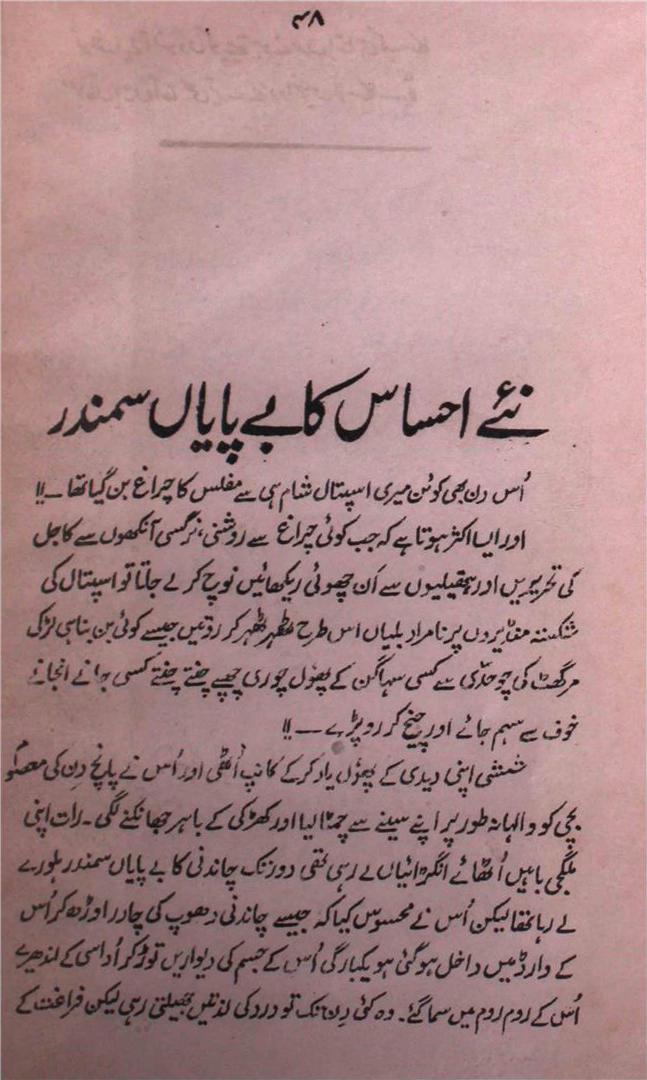 ۴۸
نئے احساس کا بے پایاں سمندر
اُس دن بھی کوئن میری اسپتال شام ہی سے مفلس کا چراغ بن گیا تھا ـــ !!
اور ایسا اکثر ہوتا ہے کہ جب کوئی چراغ سے روشنی، نرگسی آنکھوں سے کاجل
کی تحریریں اور ہتھیلیوں سے اَن چھوئی ریکھائیں نوچ کر لے جاتا تو اسپتال کی
شکستہ منڈیروں پر نامراد بلیاں اس طرح ٹھہر ٹھہر کر روتیں جیسے کوئی بن بیاہی لڑکی
مرگھٹ کی چوحدّی سے کسی سہاگن کے پھول چوری چھپے چنتے چنتے کسی جانے انجانے
خوف سے سہم جائے اور چیخ کر رو پڑے ـــ !!
ششی اپنی دیدی کے پھول یاد کرکے کانپ اُٹھی اور اُس نے پانچ دن کی معصوم
بچی کو والہانہ طور پر اپنے سینے سے چمٹا لیا اور کھڑکی کے باہر جھانکنے لگی۔ رات اپنی
ملگجی باہیں اُٹھائے انگڑائیاں لے رہی تھی دور تک چاندنی کا بے پایاں سمندر ہلورے
لے رہا تھا لیکن اُس نے محسوس کیا کہ جیسے چاندنی دھوپ کی چادر اوڑھ کر اُس
کے وارڈ میں داخل ہو گئی ہو یکبارگی اُس کے جسم کی دیواریں توڑ کر اُداسی کے اندھیرے
اُس کے روم روم میں سما گئے۔ وہ کئی دِن تک تو درد کی لذتیں جھیلتی رہی لیکن فراغت کے